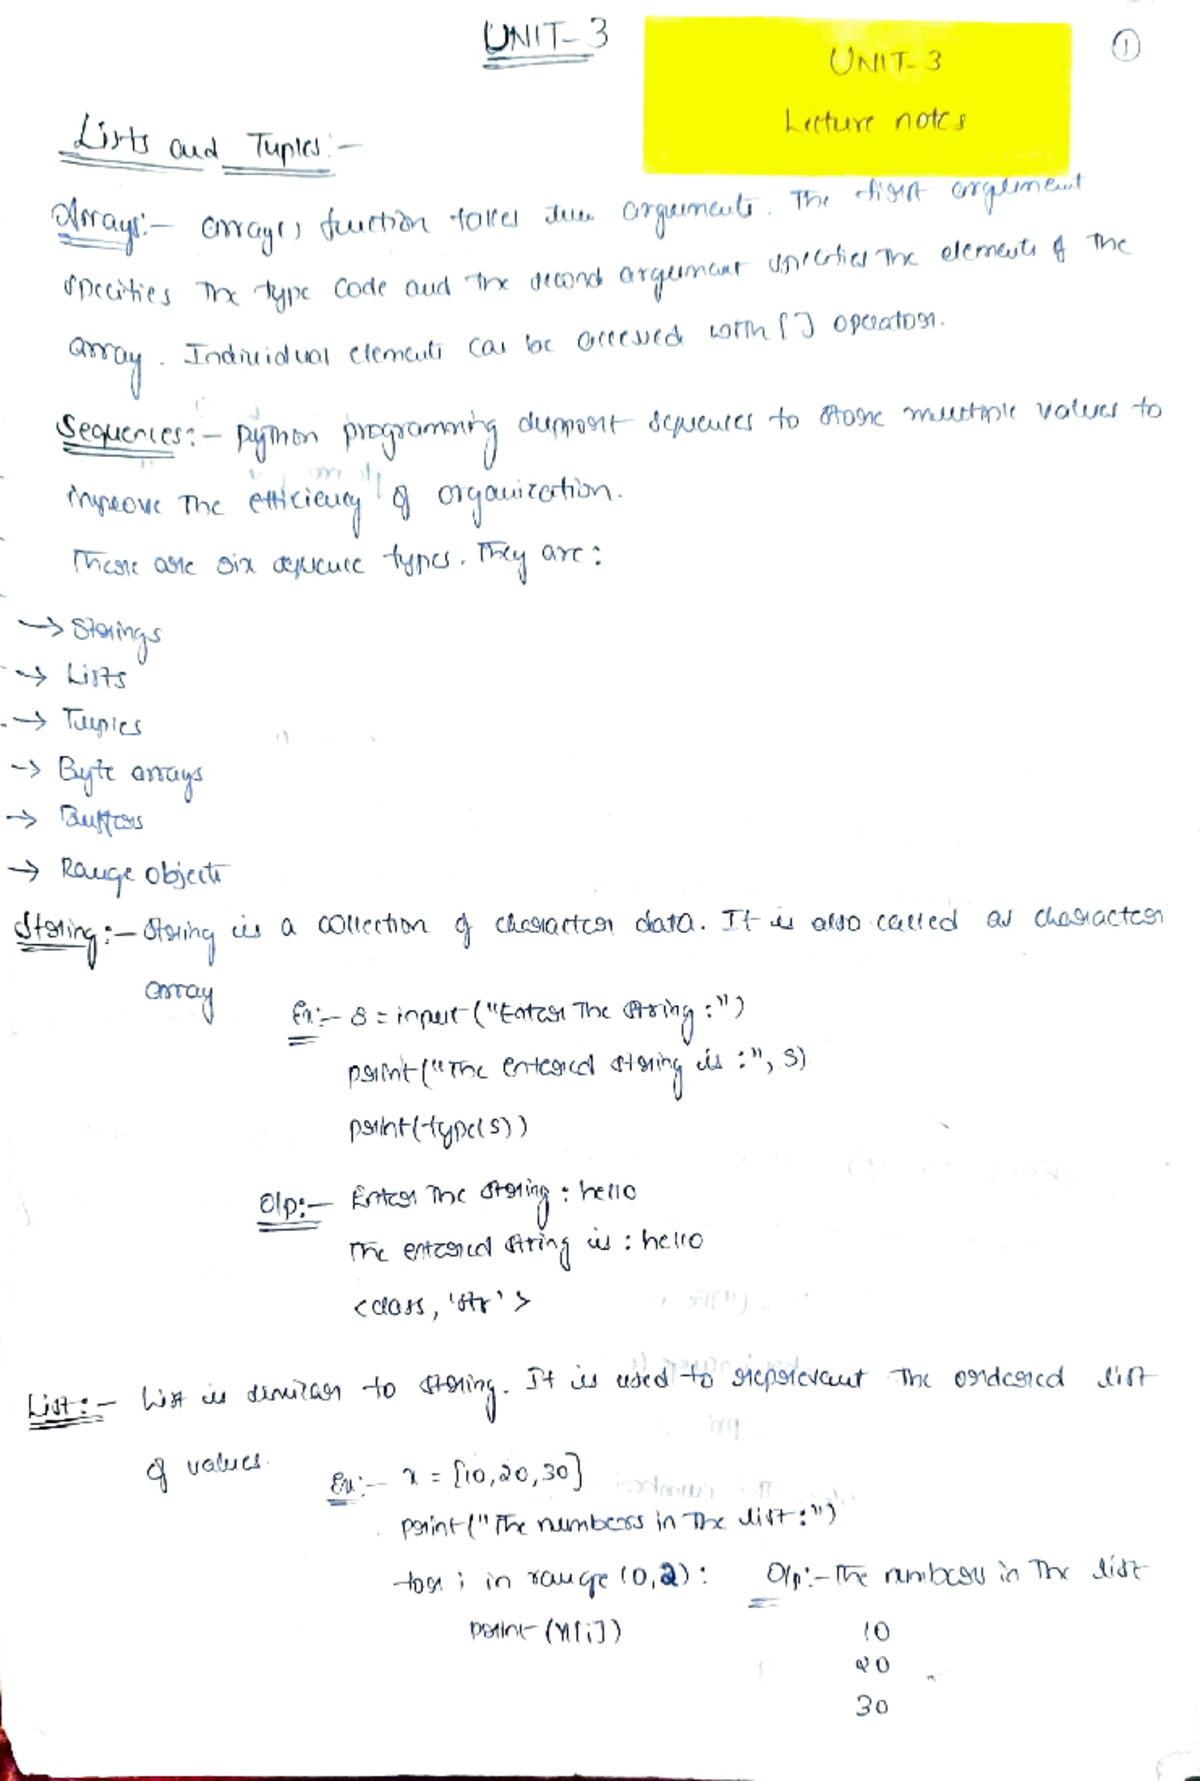 UNIT-3
①
UNIT-3
Lecture notes
Lists and Tuples:-
Arrays:- array() function takes two arguments. The first argument
specifies The type code and The second argument specifies The elements of The
array. Individual elements can be accessed with [] operator.
Sequences:- python programming support sequences to store multiple values to
improve The efficiency of organization.
There are six sequence types. They are:
→ Strings
→ Lists
→ Tuples
→ Byte arrays
→ Buffers
→ Range objects
String:- String is a collection of character data. It is also called as character
array
Ex:- S = input("Enter The string:")
print("The entered string is :", S)
print(type(S))
O/p:- Enter The string : hello
The entered string is : hello
<class, 'str'>
List:- List is similar to string. It is used to represent The ordered list
of values.
Ex:- x = [10,20,30]
print("The numbers in The list:")
for i in range (0,2): O/p:- The numbers in The list
print (x[i]) 10
20
30